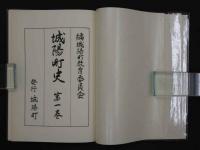 編 城陽町教育委員会
城陽町史 第一巻
発行 城陽町